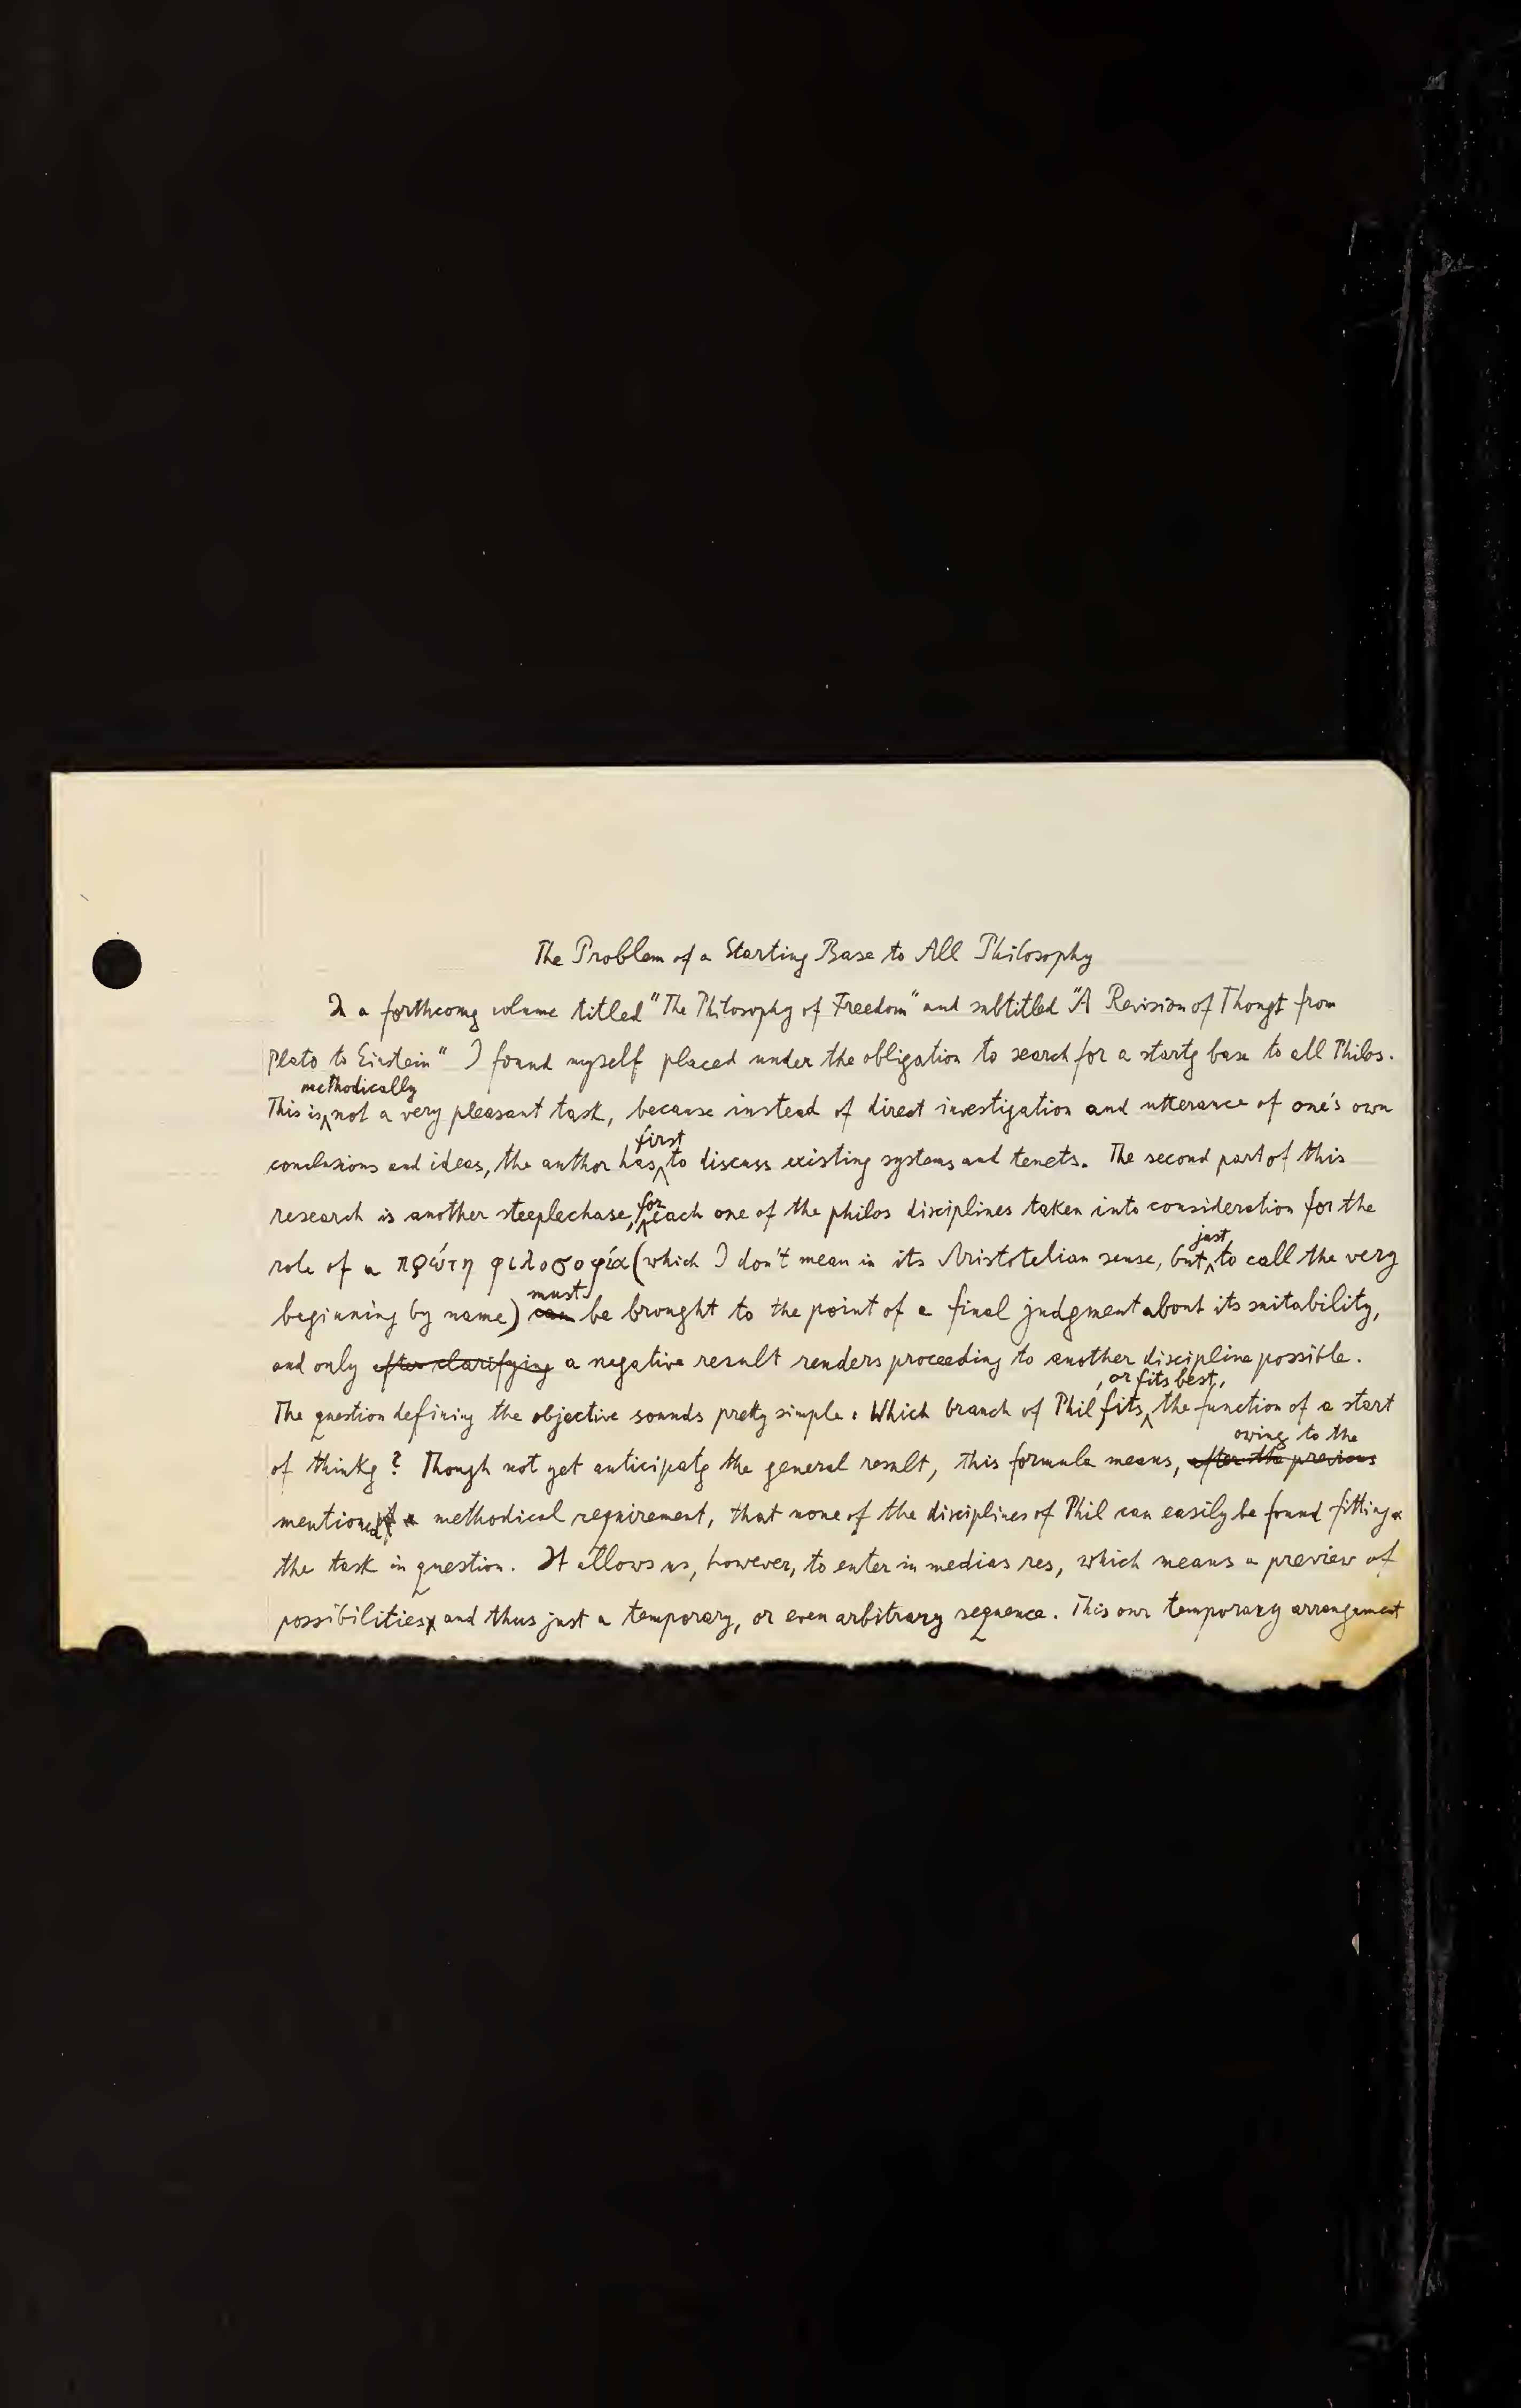 The Problem of a Starting Base to All Philosophy
In a forthcomg volume titled "The Philosophy of Freedom" and subtitled "A Revision of Thougt from
Plato to Einstein" I found myself placed under the obligation to search for a startg base to all Philos.
methodically
This is not a very pleasant task, because instead of direct investigation and utterance of one's own
first
conclusions and ideas, the author has to discuss existing systems and tenets. The second part of this
for
research is another steeplechase, each one of the philos disciplines taken into consideration for the
just
role of a πρώτη φιλοσοφία (which I don't mean in its Aristotelian sense, but to call the very
must
beginning by name) can be brought to the point of a final judgment about its suitability,
and only after clarifying a negative result renders proceeding to another discipline possible.
, or fits best,
The question defining the objective sounds pretty simple: Which branch of Phil fits the function of a start
owing to the
of thinkg? Though not yet anticipatg the general result, this formula means, after the previous
mentioned methodical requirement, that none of the disciplines of Phil can easily be found fitting
the task in question. It allows us, however, to enter in medias res, which means a preview of
possibilities and thus just a temporary, or even arbitrary sequence. This our temporary arrangement